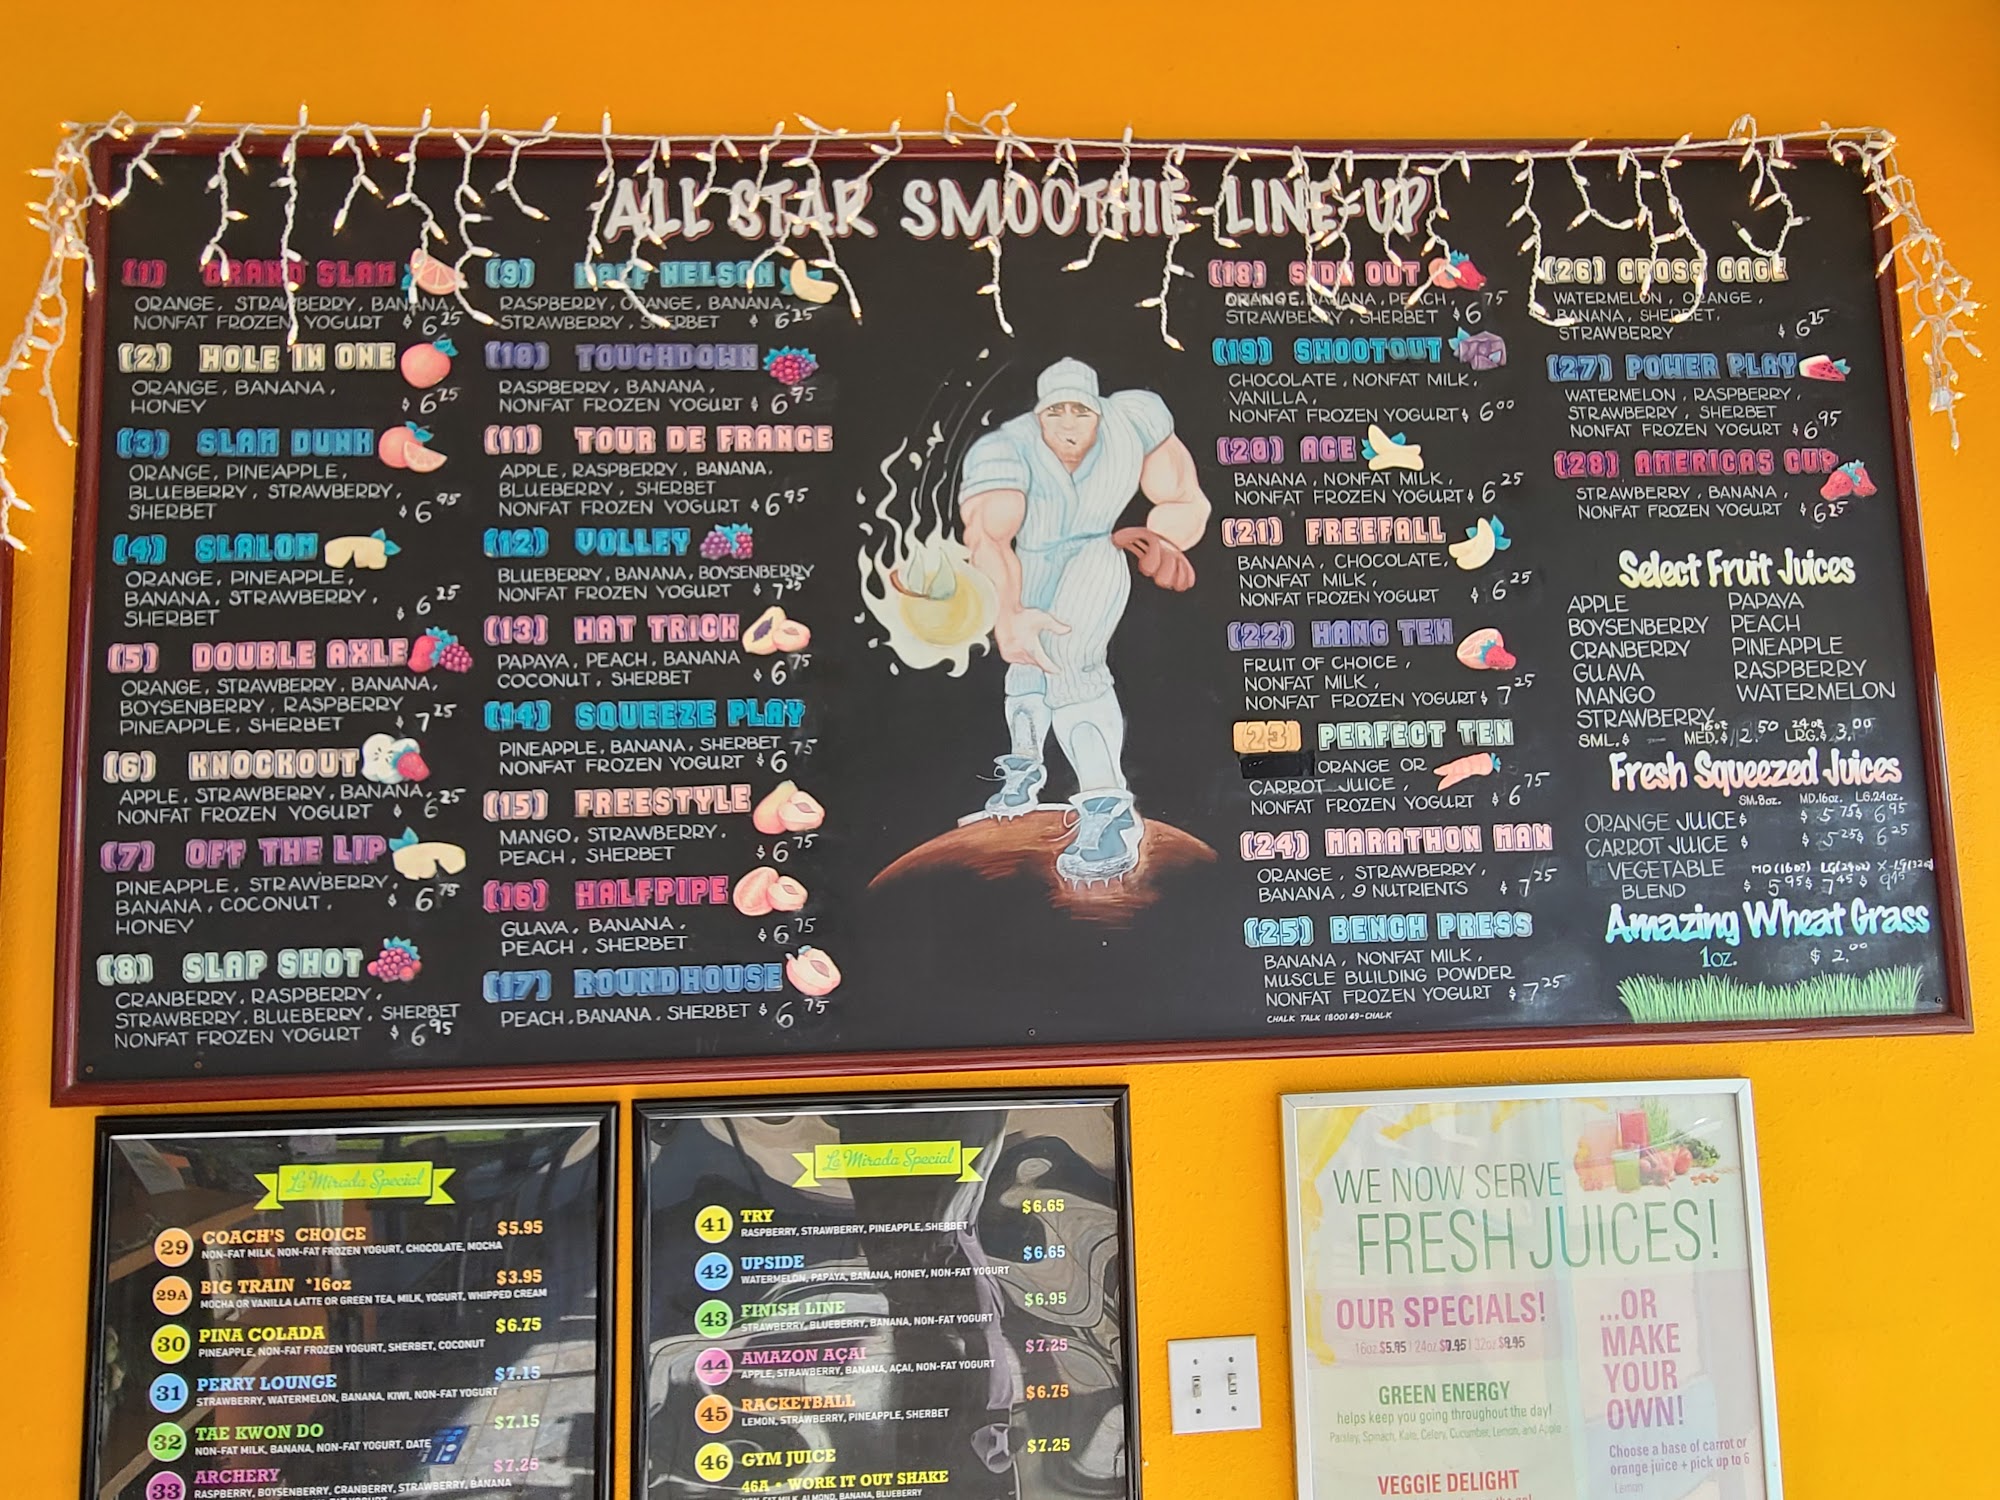 ALL STAR SMOOTHIE LINE-UP
(1) GRAND SLAM
ORANGE, STRAWBERRY, BANANA,
NONFAT FROZEN YOGURT $6.25
(2) HOLE IN ONE
ORANGE, BANANA,
HONEY $6.25
(3) SLAM DUNK
ORANGE, PINEAPPLE,
BLUEBERRY, STRAWBERRY,
SHERBET $6.95
(4) SLALOM
ORANGE, PINEAPPLE,
BANANA, STRAWBERRY,
SHERBET $6.25
(5) DOUBLE AXLE
ORANGE, STRAWBERRY, BANANA,
BOYSENBERRY, RASPBERRY
PINEAPPLE, SHERBET $7.25
(6) KNOCKOUT
APPLE, STRAWBERRY, BANANA,
NONFAT FROZEN YOGURT $6.25
(7) OFF THE LIP
PINEAPPLE, STRAWBERRY,
BANANA, COCONUT, $6.75
HONEY
(8) SLAP SHOT
CRANBERRY, RASPBERRY,
STRAWBERRY, BLUEBERRY, SHERBET
NONFAT FROZEN YOGURT $6.95
(9) HALF NELSON
RASPBERRY, ORANGE, BANANA,
STRAWBERRY, SHERBET $6.25
(10) TOUCHDOWN
RASPBERRY, BANANA,
NONFAT FROZEN YOGURT $6.95
(11) TOUR DE FRANCE
APPLE, RASPBERRY, BANANA,
BLUEBERRY, SHERBET
NONFAT FROZEN YOGURT $6.95
(12) VOLLEY
BLUEBERRY, BANANA, BOYSENBERRY
NONFAT FROZEN YOGURT $7.25
(13) HAT TRICK
PAPAYA, PEACH, BANANA
COCONUT, SHERBET $6.75
(14) SQUEEZE PLAY
PINEAPPLE, BANANA, SHERBET
NONFAT FROZEN YOGURT $6.75
(15) FREESTYLE
MANGO, STRAWBERRY,
PEACH, SHERBET $6.75
(16) HALFPIPE
GUAVA, BANANA,
PEACH, SHERBET $6.75
(17) ROUNDHOUSE
PEACH, BANANA, SHERBET $6.75
(18) SIDE OUT
ORANGE, BANANA, PEACH,
STRAWBERRY, SHERBET $6.75
(19) SHOOTOUT
CHOCOLATE, NONFAT MILK,
VANILLA,
NONFAT FROZEN YOGURT $6.00
(20) ACE
BANANA, NONFAT MILK,
NONFAT FROZEN YOGURT $6.25
(21) FREEFALL
BANANA, CHOCOLATE,
NONFAT MILK,
NONFAT FROZEN YOGURT $6.25
(22) HANG TEN
FRUIT OF CHOICE,
NONFAT MILK,
NONFAT FROZEN YOGURT $7.25
(23) PERFECT TEN
ORANGE OR
CARROT JUICE,
NONFAT FROZEN YOGURT $6.75
(24) MARATHON MAN
ORANGE, STRAWBERRY,
BANANA, 9 NUTRIENTS $7.25
(25) BENCH PRESS
BANANA, NONFAT MILK,
MUSCLE BUILDING POWDER
NONFAT FROZEN YOGURT $7.25
CHALK TALK (800)49-CHALK
(26) CROSS CAGE
WATERMELON, ORANGE,
BANANA, SHERBET,
STRAWBERRY $6.25
(27) POWER PLAY
WATERMELON, RASPBERRY,
STRAWBERRY, SHERBET
NONFAT FROZEN YOGURT $6.95
(28) AMERICAS CUP
STRAWBERRY, BANANA,
NONFAT FROZEN YOGURT $6.25
Select Fruit Juices
APPLE PAPAYA
BOYSENBERRY PEACH
CRANBERRY PINEAPPLE
GUAVA RASPBERRY
MANGO WATERMELON
STRAWBERRY
SML.$ — 16oz MED.$ 2.50 24oz LRG.$ 3.00
Fresh Squeezed Juices
SM.8oz. MD.16oz. LG.24oz.
ORANGE JUICE $ $5.75 $6.95
CARROT JUICE $ $5.25 $6.25
VEGETABLE BLEND MD(16oz) LG(24oz) X-LG(32oz)
$5.95 $7.45 $9.15
Amazing Wheat Grass
1oz. $2.00
La Mirada Special
29 COACH'S CHOICE $5.95
NON-FAT MILK, NON-FAT FROZEN YOGURT, CHOCOLATE, MOCHA
29A BIG TRAIN *16oz $3.95
MOCHA OR VANILLA LATTE OR GREEN TEA, MILK, YOGURT, WHIPPED CREAM
30 PINA COLADA $6.75
PINEAPPLE, NON-FAT FROZEN YOGURT, SHERBET, COCONUT
31 PERRY LOUNGE $7.15
STRAWBERRY, WATERMELON, BANANA, KIWI, NON-FAT YOGURT
32 TAE KWON DO $7.15
NON-FAT MILK, BANANA, NON-FAT YOGURT, DATE
33 ARCHERY $7.25
RASPBERRY, BOYSENBERRY, CRANBERRY, STRAWBERRY, BANANA
La Mirada Special
41 TRY $6.65
RASPBERRY, STRAWBERRY, PINEAPPLE, SHERBET
42 UPSIDE $6.65
WATERMELON, PAPAYA, BANANA, HONEY, NON-FAT YOGURT
43 FINISH LINE $6.95
STRAWBERRY, BLUEBERRY, BANANA, NON-FAT YOGURT
44 AMAZON AÇAI $7.25
APPLE, STRAWBERRY, BANANA, AÇAI, NON-FAT YOGURT
45 RACKETBALL $6.75
LEMON, STRAWBERRY, PINEAPPLE, SHERBET
46 GYM JUICE $7.25
46A • WORK IT OUT SHAKE
NON-FAT MILK, ALMOND, BANANA, BLUEBERRY
WE NOW SERVE
FRESH JUICES!
OUR SPECIALS!
16oz $5.95 | 24oz $7.45 | 32oz
GREEN ENERGY
helps keep you going throughout the day!
Parsley, Spinach, Kale, Celery, Cucumber, Lemon, and Apple
VEGGIE DELIGHT
...OR
MAKE
YOUR
OWN!
Choose a base of carrot or
orange juice + pick up to 6
Lemon